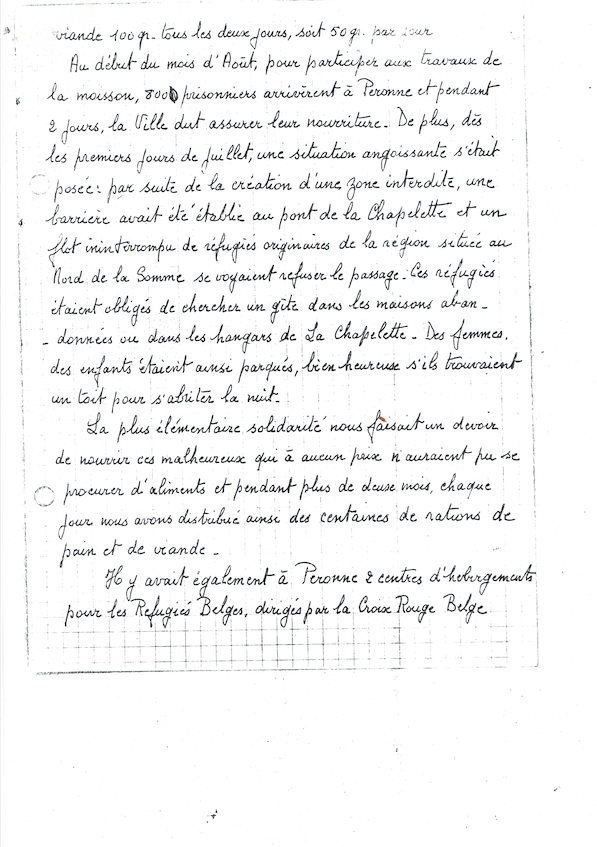 viande 100 gr. tous les deux jours, soit 50 gr. par jour
Au début du mois d'Août, pour participer aux travaux de
la moisson, 8000 prisonniers arrivèrent à Peronne et pendant
2 jours, la Ville dut assurer leur nourriture. De plus, dès
les premiers jours de juillet, une situation angoissante s'était
posée : par suite de la création d'une zone interdite, une
barrière avait été établie au pont de la Chapelette et un
flot ininterrompu de réfugiés originaires de la région située au
Nord de la Somme se voyaient refuser le passage. Ces réfugiés
étaient obligés de chercher un gîte dans les maisons aban-
-données ou dans les hangars de La Chapelette. Des femmes,
des enfants étaient ainsi parqués, bien heureuse s'ils trouvaient
un toit pour s'abriter la nuit.
La plus élémentaire solidarité nous faisait un devoir
de nourrir ces malheureux qui à aucun prix n'auraient pu se
procurer d'aliments et pendant plus de deux mois, chaque
jour nous avons distribué ainsi des centaines de rations de
pain et de viande.
Il y avait également à Peronne 2 centres d'hebergements
pour les Refugiés Belges, dirigés par la Croix Rouge Belge